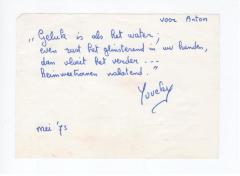 voor Anton
"Geluk is als het water;
even rust het glinsterend in uw handen,
dan vloeit het verder ---
heimweetranen nalatend."
mei '73